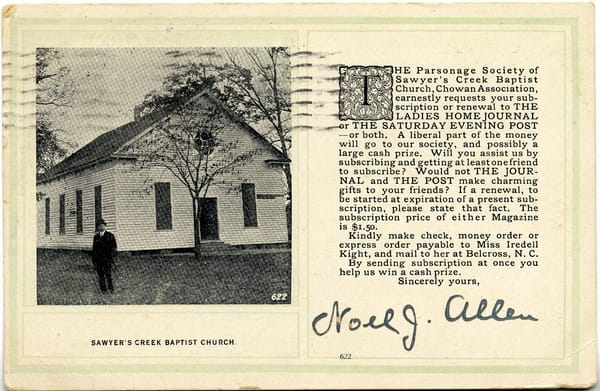 622
SAWYER'S CREEK BAPTIST CHURCH.
THE Parsonage Society of
Sawyer's Creek Baptist
Church, Chowan Association,
earnestly requests your sub-
scription or renewal to THE
LADIES HOME JOURNAL
or THE SATURDAY EVENING POST
—or both. A liberal part of the money
will go to our society, and possibly a
large cash prize. Will you assist us by
subscribing and getting at least one friend
to subscribe? Would not THE JOUR-
NAL and THE POST make charming
gifts to your friends? If a renewal, to
be started at expiration of a present sub-
scription, please state that fact. The
subscription price of either Magazine
is $1.50.
Kindly make check, money order or
express order payable to Miss Iredell
Kight, and mail to her at Belcross, N. C.
By sending subscription at once you
help us win a cash prize.
Sincerely yours,
Noel J. Allen
622